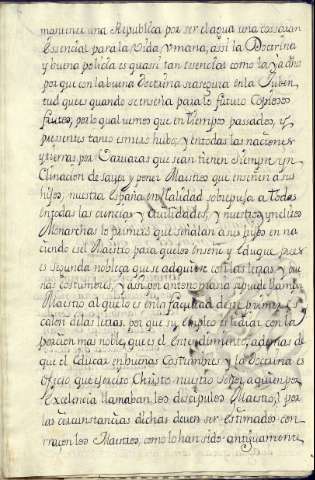 mantener una Republica por ser el agua una cossa tan
Essencial para la Vida Vmana, assi la Doctrina
y buena policia es quasi tan esencial como la ya dha
por que con la buena Doctrina se asegura en la Juben
tud que es quando se enseña para lo futuro Copiosos
frutos, por lo qual uemos que en tiempos passados, y
pressentes tanto esmero hubo, y en todas las naciones
y tierras por Barbaras que sean tienen siempre yn
clinacion de sauer y poner Maestros que enseñen a sus
hijos, nuestra España en Calidad sobrepuja a Todos
en todas las ciencias y abilidades, y nuestros ynclitos
Monarchas lo primero que señalan a sus hijos en na
ciendo es el Maestro para que los enseñe y Eduque pues
es segunda nobleza que se adquiere con las letras y bue
nas costumbres, y assi por antonomasia se puede llamar
Maestro al que lo es en la facultad de el primer
calon de las letras, por que su empleo es lidiar con la
porcion mas noble, que es el entendimiento, ademas de
que el Educar en buenas Costumbres y la Doctrina es
oficio que exercito Christo nuestro Señor, a quien por
Excelencia llamaban los discipulos Maestro, y por
las circunstancias dichas deuen ser estimados con
rraçon los Maestros, como lo han sido antiguamente